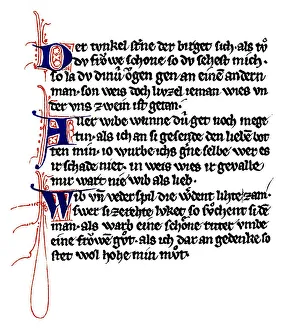 Der tunkel st'ne der birget sich. als tvͦ
dv froͮwe schone so dv sehest mich.
so la dv dinv oͮgen gen an einē andern
man. son weis doch lvzel ieman wies vn
der vns zwein ist getan.
Aller wibe wunne dv get noch mege
tin. als ich an si gesende den lieben bot
ten min. io wurbe ichs gne selbe wer es
ir schade niet. in weis wies ir gevalle
mir wart nie wib als lieb.
Wib vn̄ veder spil die wdent lihte zam.
swer si zerehte lvket so svͦchent si dē
man. als warb eine schone ritter vmbe
eine froͮwen gvͦt. als ich dar an gedenke so
stet wol hohe min mvͦt.